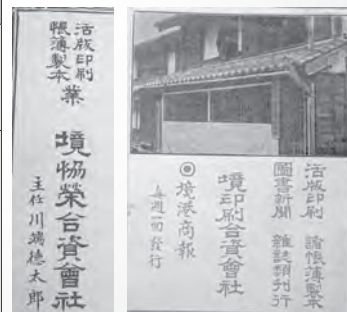 活版印刷
帳簿製本
業
境協榮合資會社
主任川端徳太郎
活版印刷 諸帳簿製本
圖書新聞 雜誌類刊行
境印刷合資會社
◉境港商報
毎週一回發行